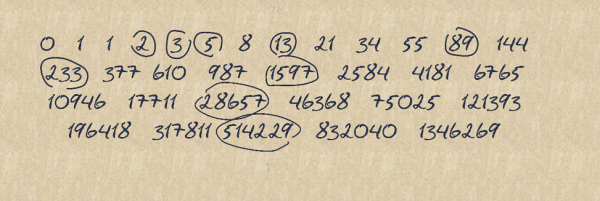 0 1 1 2 3 5 8 13 21 34 55 89 144
233 377 610 987 1597 2584 4181 6765
10946 17711 28657 46368 75025 121393
196418 317811 514229 832040 1346269